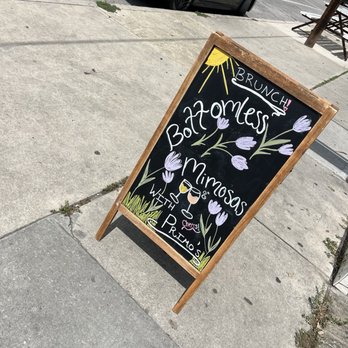 BRUNCH!
Bottomless
Mimosas
WITH Cheers!
PRIMO'S